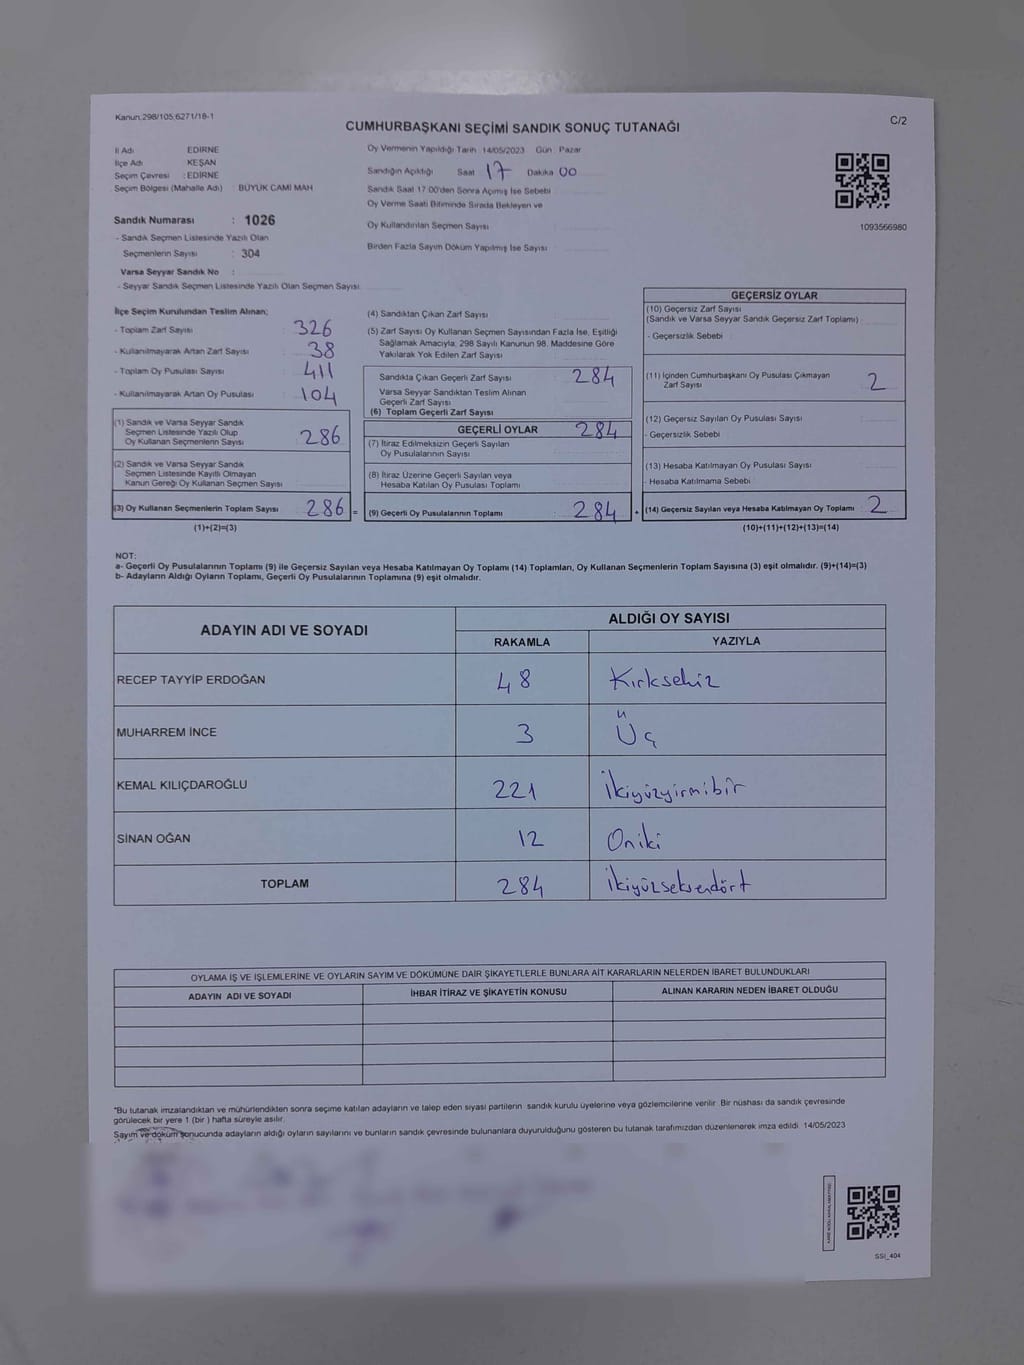 Kanun:298/105;6271/18-1
C/2
CUMHURBAŞKANI SEÇİMİ SANDIK SONUÇ TUTANAĞI
İl Adı EDİRNE
İlçe Adı KEŞAN
Seçim Çevresi : EDİRNE
Seçim Bölgesi (Mahalle Adı) : BÜYÜK CAMİ MAH
Oy Vermenin Yapıldığı Tarih 14/05/2023 Gün Pazar
Sandığın Açıldığı Saat 17 Dakika 00
Sandık Saat 17:00'den Sonra Açımış İse Sebebi
Oy Verme Saati Bitiminde Sırada Bekleyen ve
Oy Kullandırılan Seçmen Sayısı
Birden Fazla Sayım Döküm Yapılmış İse Sayısı
1093566980
Sandık Numarası : 1026
- Sandık Seçmen Listesinde Yazılı Olan
Seçmenlerin Sayısı : 304
Varsa Seyyar Sandık No :
- Seyyar Sandık Seçmen Listesinde Yazılı Olan Seçmen Sayısı
İlçe Seçim Kurulundan Teslim Alınan;
- Toplam Zarf Sayısı : 326
- Kullanılmayarak Artan Zarf Sayısı : 38
- Toplam Oy Pusulası Sayısı : 411
- Kullanılmayarak Artan Oy Pusulası : 104
(1) Sandık ve Varsa Seyyar Sandık
Seçmen Listesinde Yazılı Olup
Oy Kullanan Seçmenlerin Sayısı : 286
(2) Sandık ve Varsa Seyyar Sandık
Seçmen Listesinde Kayıtlı Olmayan
Kanun Gereği Oy Kullanan Seçmen Sayısı
(3) Oy Kullanan Seçmenlerin Toplam Sayısı 286 =
(1)+(2)=(3)
(4) Sandıktan Çıkan Zarf Sayısı
(5) Zarf Sayısı Oy Kullanan Seçmen Sayısından Fazla İse, Eşitliği
Sağlamak Amacıyla, 298 Sayılı Kanunun 98. Maddesine Göre
Yakılarak Yok Edilen Zarf Sayısı
Sandıkta Çıkan Geçerli Zarf Sayısı 284
Varsa Seyyar Sandıktan Teslim Alınan
Geçerli Zarf Sayısı
(6) Toplam Geçerli Zarf Sayısı
GEÇERLİ OYLAR 284
(7) İtiraz Edilmeksizin Geçerli Sayılan
Oy Pusulalarının Sayısı
(8) İtiraz Üzerine Geçerli Sayılan veya
Hesaba Katılan Oy Pusulası Toplamı
(9) Geçerli Oy Pusulalarının Toplamı 284 +
GEÇERSİZ OYLAR
(10) Geçersiz Zarf Sayısı
(Sandık ve Varsa Seyyar Sandık Geçersiz Zarf Toplamı)
- Geçersizlik Sebebi
(11) İçinden Cumhurbaşkanı Oy Pusulası Çıkmayan
Zarf Sayısı 2
(12) Geçersiz Sayılan Oy Pusulası Sayısı
- Geçersizlik Sebebi
(13) Hesaba Katılmayan Oy Pusulası Sayısı
- Hesaba Katılmama Sebebi
(14) Geçersiz Sayılan veya Hesaba Katılmayan Oy Toplamı 2
(10)+(11)+(12)+(13)=(14)
NOT:
a- Geçerli Oy Pusulalarının Toplamı (9) ile Geçersiz Sayılan veya Hesaba Katılmayan Oy Toplamı (14) Toplamları, Oy Kullanan Seçmenlerin Toplam Sayısına (3) eşit olmalıdır. (9)+(14)=(3)
b- Adayların Aldığı Oyların Toplamı, Geçerli Oy Pusulalarının Toplamına (9) eşit olmalıdır.
ADAYIN ADI VE SOYADI
ALDIĞI OY SAYISI
RAKAMLA YAZIYLA
RECEP TAYYİP ERDOĞAN 48 Kırksekiz
MUHARREM İNCE 3 Üç
KEMAL KILIÇDAROĞLU 221 İkiyüzyirmibir
SİNAN OĞAN 12 Oniki
TOPLAM 284 İkiyüzseksendört
OYLAMA İŞ VE İŞLEMLERİNE VE OYLARIN SAYIM VE DÖKÜMÜNE DAİR ŞİKAYETLERLE BUNLARA AİT KARARLARIN NELERDEN İBARET BULUNDUKLARI
ADAYIN ADI VE SOYADI İHBAR İTİRAZ VE ŞİKAYETİN KONUSU ALINAN KARARIN NEDEN İBARET OLDUĞU
*Bu tutanak imzalandıktan ve mühürlendikten sonra seçime katılan adayların ve talep eden siyasi partilerin sandık kurulu üyelerine veya gözlemcilerine verilir. Bir nüshası da sandık çevresinde
görülecek bir yere 1 (bir) hafta süreyle asılır.
Sayım ve döküm sonucunda adayların aldığı oyların sayılarını ve bunların sandık çevresinde bulunanlara duyurulduğunu gösteren bu tutanak tarafımızdan düzenlenerek imza edildi. 14/05/2023
SSI_404